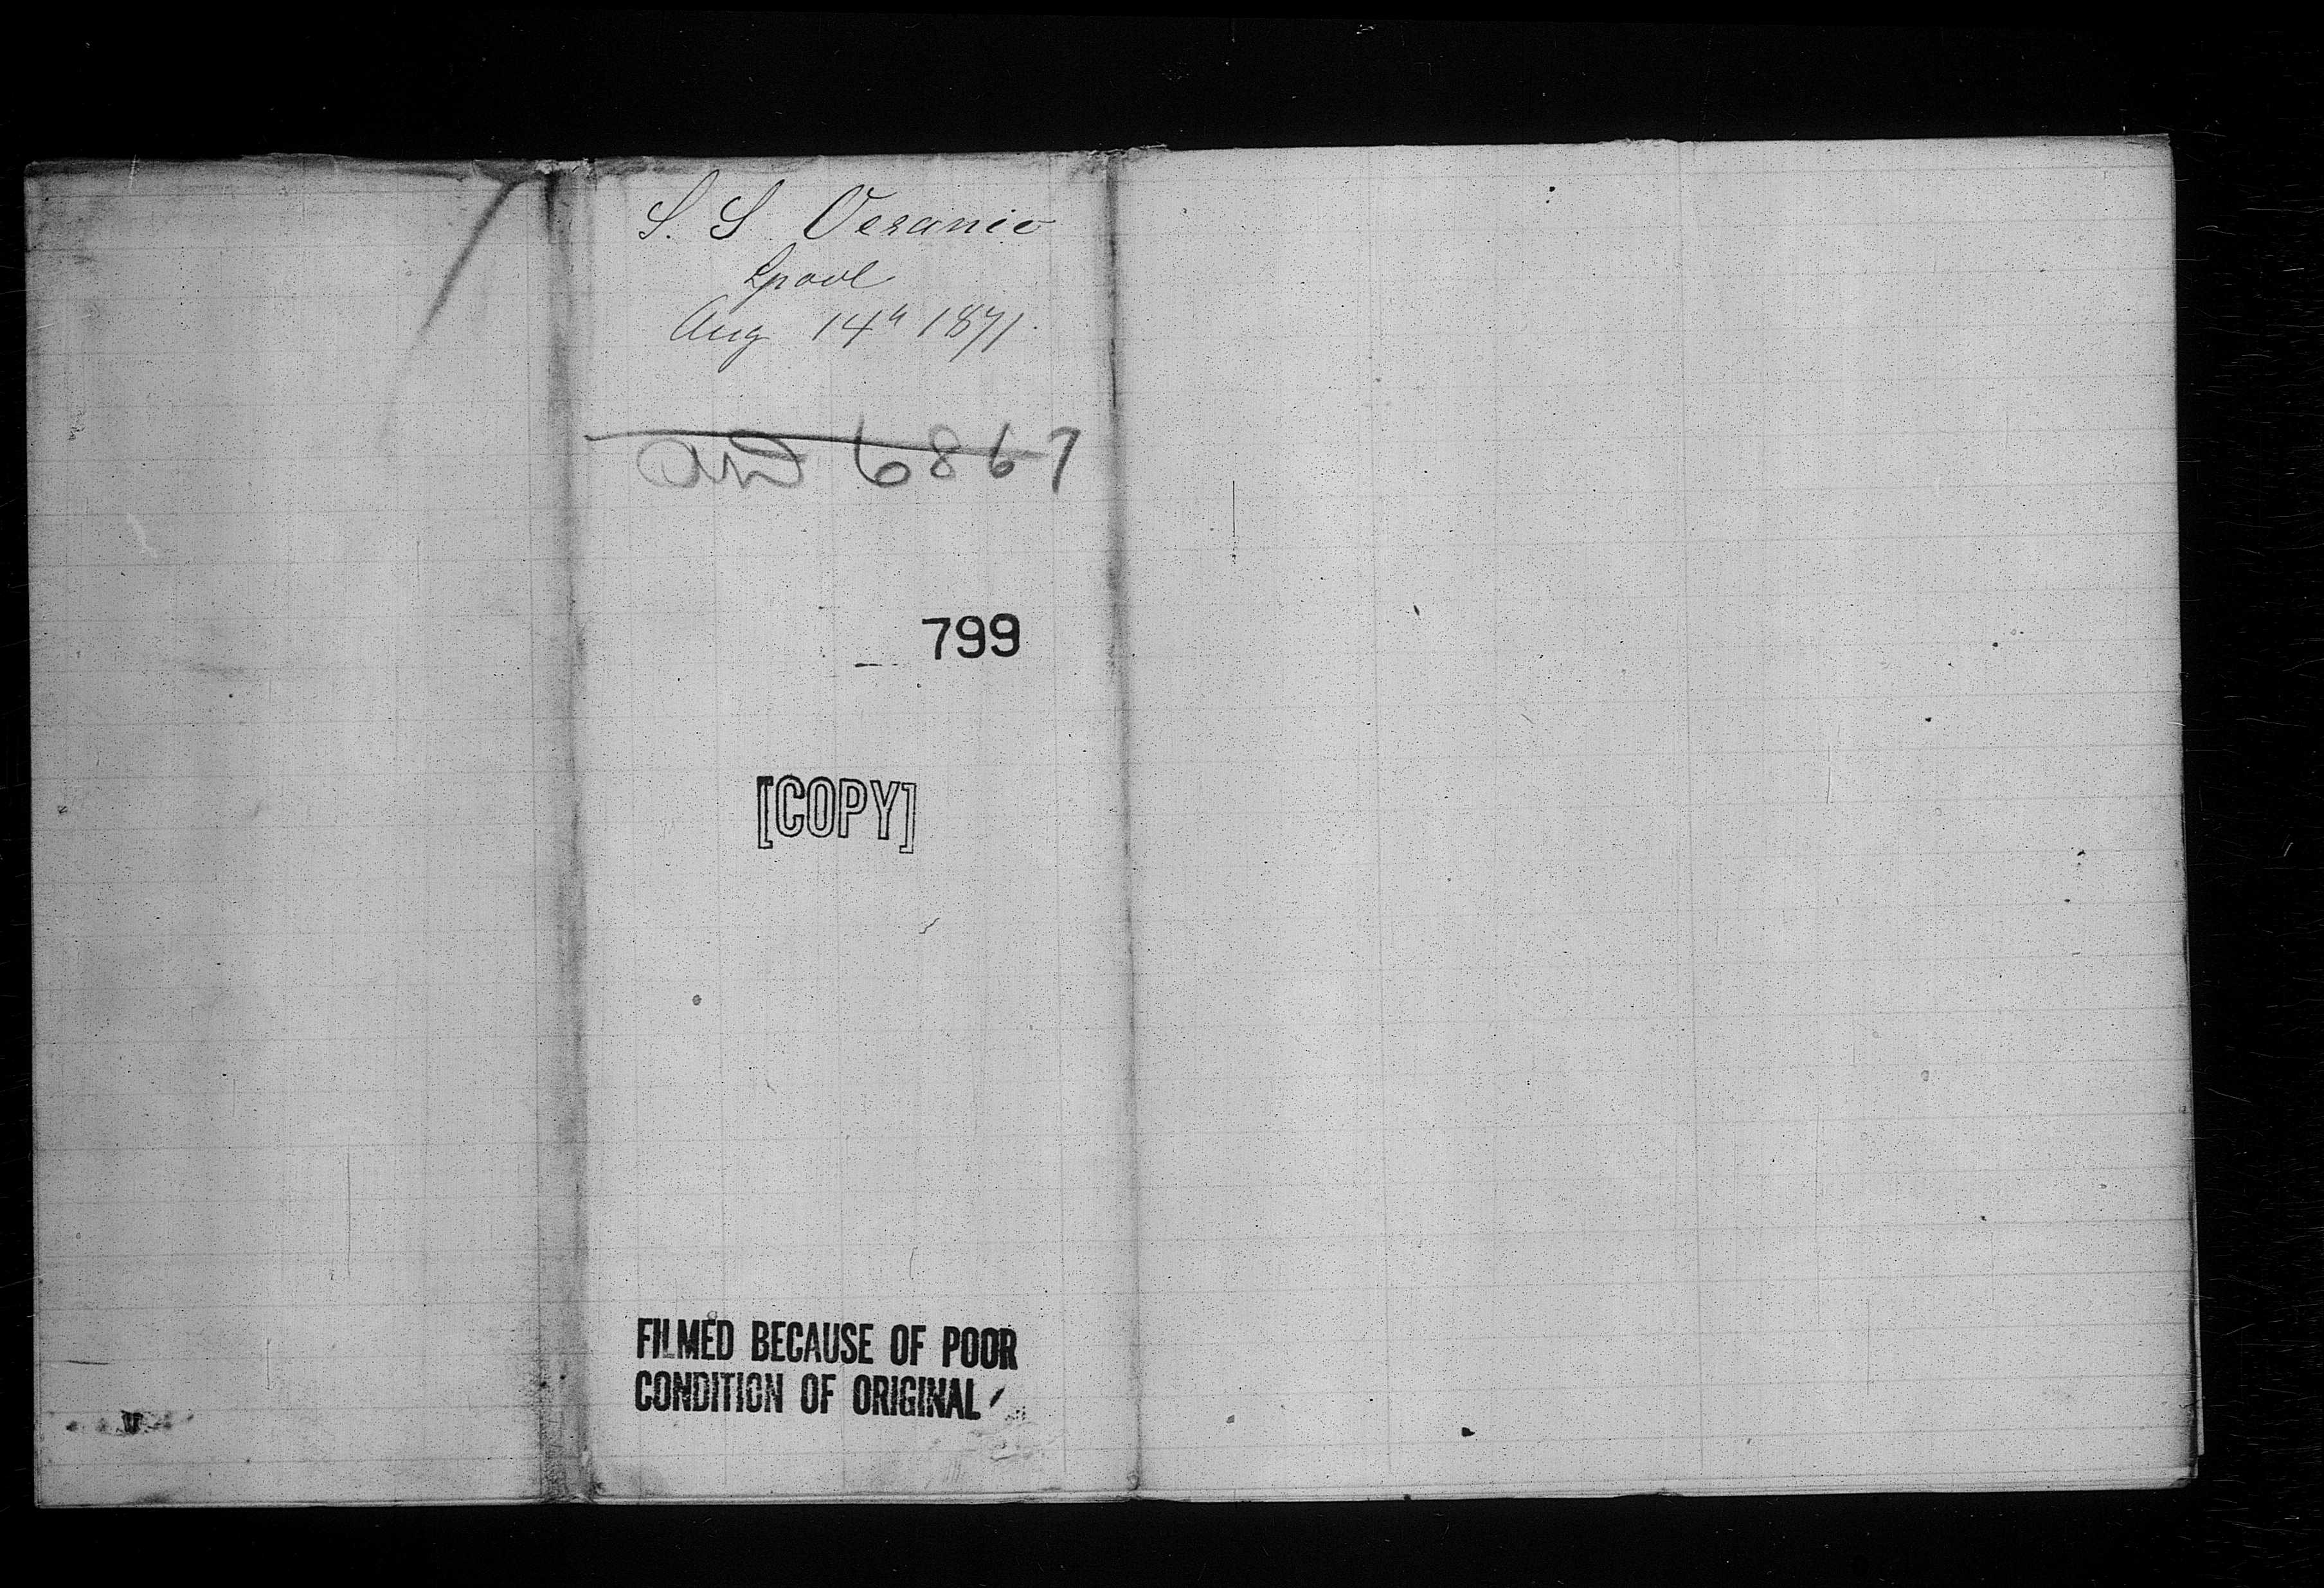 S. S. Oceanic
Lpool
Aug 14th 1871.
6867
799
[COPY]
FILMED BECAUSE OF POOR
CONDITION OF ORIGINAL